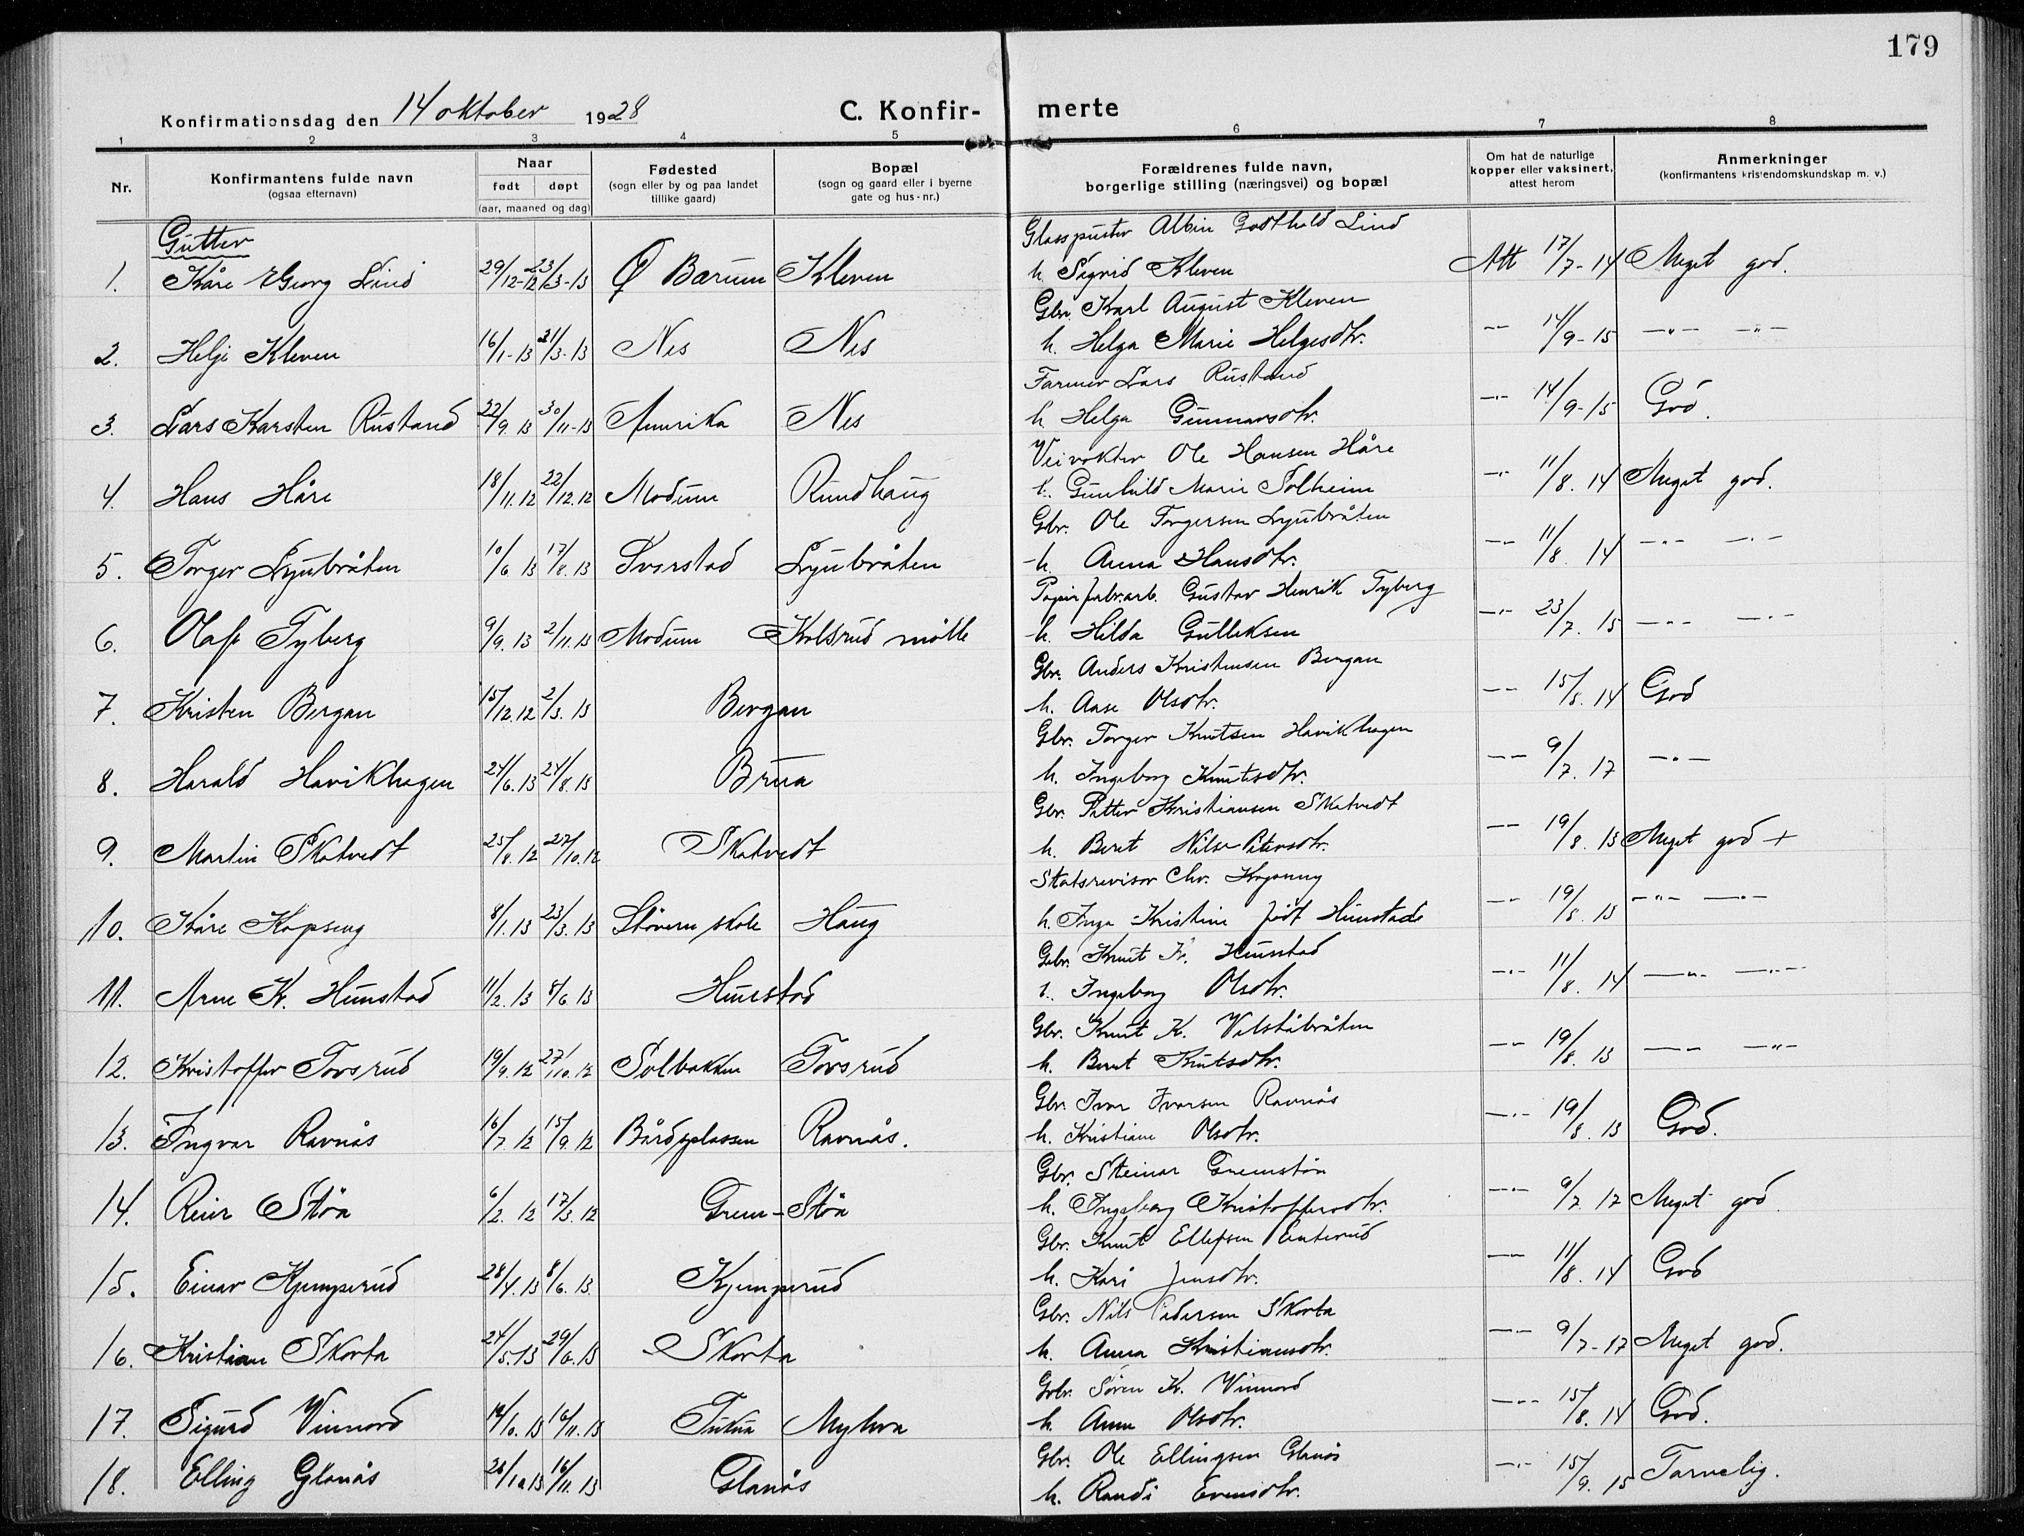 179
Konfirmationsdag den 14 oktober 1928 C. Konfir- merte
1 2 3 4 5 6 7 8
Nr. Konfirmantens fulde navn (ogsaa efternavn) Naar født døpt (aar, maaned og dag) Fødested (sogn eller by og paa landet tillike gaard) Bopæl (sogn og gaard eller i byerne gate og hus-nr.) Forældrenes fulde navn, borgerlige stilling (næringsvei) og bopæl Om hat de naturlige kopper eller vaksinert, attest herom Anmerkninger (konfirmantens kristendomskundskap m. v.)
Gutter
Glasspuster Albin Godthold Lind
1. Kåre Georg Lind 29/12-12 23/3-13 Ø Bærum Kleven h Sigrid Kleven Att 17/7-14 Meget god.
Gbr. Karl August Kleven
2. Helje Kleven 16/1-13 21/3-13 Nes Nes h. Helga Marie Helgesdtr. -"- 14/9-15 -"- -"-
Farmer Lars Rustand
3. Lars Karsten Rustand 22/9.13 30/11-13 Amerika Nes h Helga Gunnarsdtr. -"- 14/9-15 God.
Veivokter Ole Hansen Håre
4. Hans Håre 18/11.12 22/12.12 Modum Rundhaug h. Gunhild Marie Solheim -"- 11/8.14 Meget god.
Gbr. Ole Torgersen Lyubråten
5. Torger Lyubråten 10/6 13 17/8.13 Sverstad Lyubråten h. Anna Hansdtr. -"- 11/8.14 -"- -"-
Papirfabr.arb. Gustav Henrik Tyberg
6. Olaf Tyberg 9/9.13 2/11.13 Modum Kolsrud mølle h. Hilda Gulleksen -"- 23/7.15 -"- -"-
Gbr. Anders Kristensen Bergan
7. Kristen Bergan 15/12.12 2/3.13 Bergan h. Aase Olsdtr. -"- 15/8.14 God
Gbr. Torger Knutsen Havikhagen
8. Harald Havikhagen 24/6.13 24/8.13 Brua h. Ingeborg Knutsdtr. -"- 9/7.17 -"-
Gbr. Petter Kristiansen Skatvedt
9. Martin Skatvedt 25/8.12 27/10.12 Skatvedt h. Beret Nilse Petersdtr. -"- 19/8.13 Meget god +
Statsrevisor Chr. Kopseng
10. Kåre Kopseng 8/1.13 23/3.13 Støveren skole Haug h. Inga Kristine født Hunstade -"- 19/8.13 -"- -"-
Gbr. Knut K. Hunstad
11. Arne K. Hunstad 11/2.13 8/6 13 Hunstad h. Ingeborg Olsdtr. -"- 11/8.14 -"- -"-
Gbr. Knut K. Velståbråten
12. Kristoffer Torsrud 19/9.12 27/10.12 Solbakken Torsrud h. Beret Knutsdtr. -"- 19/8.13 -"- -"-
Gbr. Ivar Ivarsen Ravnås
13. Ingvar Ravnås 16/7.12 15/9.12 Bårdsplassen Ravnås. h. Kristiane Olsdtr. -"- 19/8.13 God.
Gbr. Steinar Gremstøa
14. Reier Støa 6/2.12 17/3.12 Grem-Støa h. Ingeborg Kristoffersdtr. -"- 9/7.17 Meget god.
Gbr. Knut Ellefsen Enterud
15. Einar Kjemperud 28/4.13 8/6.13. Kjemperud h. Kari Jensdtr. -"- 11/8.14 God
Gbr. Nils Pedersen Skorta
16. Kristian Skorta 24/5.13 29/6.13 Skorta h. Anna Kristiansdtr. -"- 9/7-17 Meget god.
Gbr. Søren Kr. Vinnord
17. Sigurd Vinnord 14/10.13 16/11.13 Myhra h. Anne Olsdtr. -"- 15/8.14 God.
Gbr. Ole Ellingsen Glanås
18. Elling Glanås 26/10 13 16/11.13 Glanås h. Randi Evensdtr. -"- 15/9.15 Tarvelig.